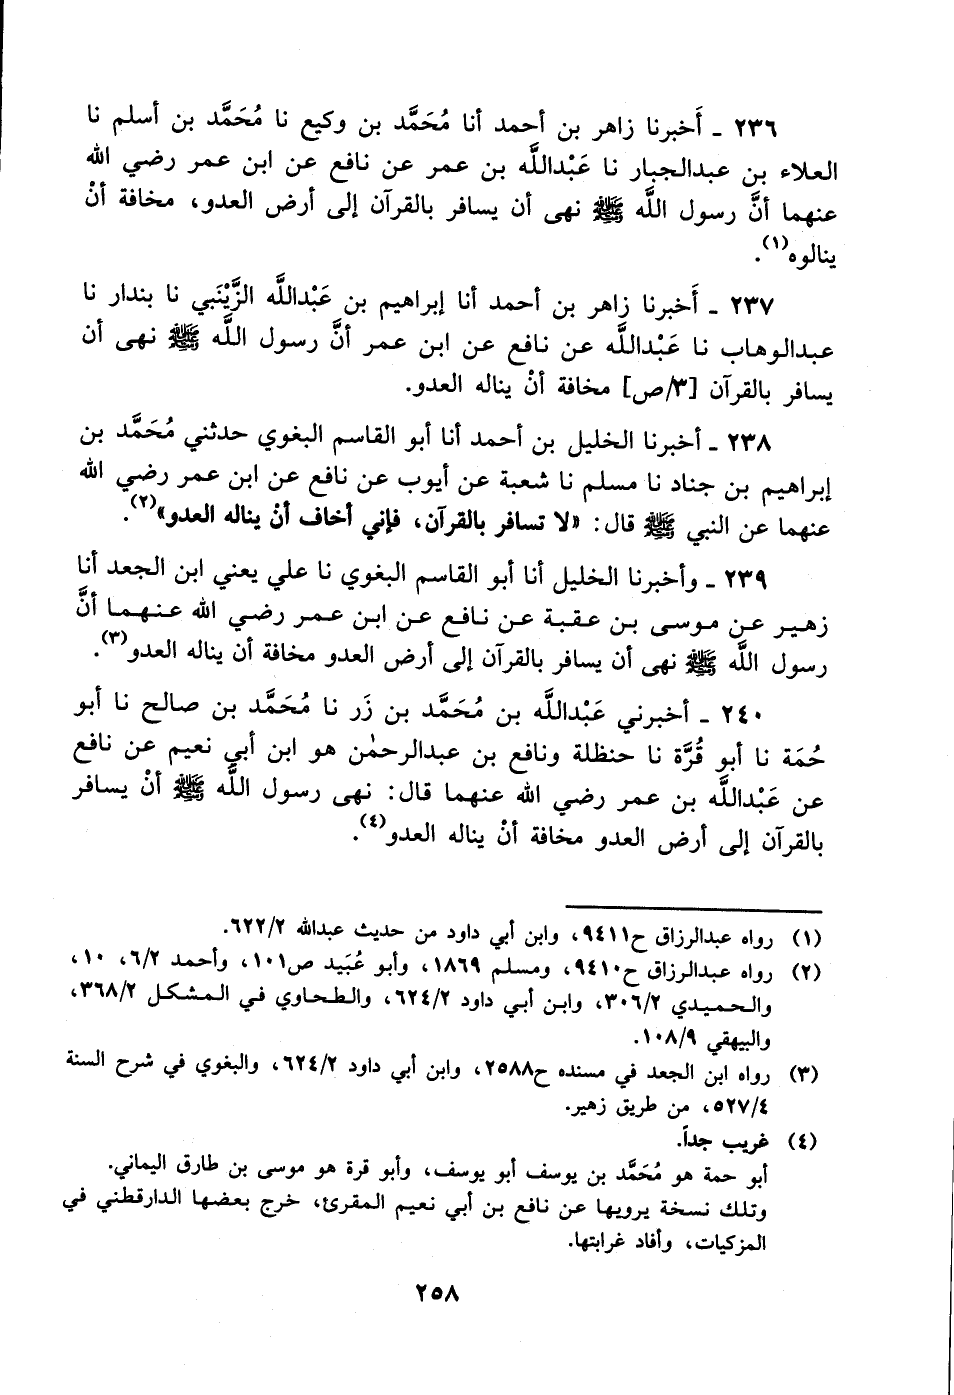 ٢٣٦ ـ أَخبرنا زاهر بن أحمد أنا مُحَمَّد بن وكيع نا مُحَمَّد بن أسلم نا
العلاء بن عبدالجبار نا عَبْداللَّه بن عمر عن نافع عن ابن عمر رضي الله
عنهما أنَّ رسول اللَّه ﷺ نهى أن يسافر بالقرآن إلى أرض العدو، مخافة أنْ
ينالوه(١).
٢٣٧ ـ أَخبرنا زاهر بن أحمد أنا إبراهيم بن عَبْداللَّه الزَّيْنَبي نا بندار نا
عبدالوهاب نا عَبْداللَّه عن نافع عن ابن عمر أنَّ رسول اللَّه ﷺ نهى أن
يسافر بالقرآن [٣/ص] مخافة أنْ يناله العدو.
٢٣٨ ـ أخبرنا الخليل بن أحمد أنا أبو القاسم البغوي حدثني مُحَمَّد بن
إبراهيم بن جناد نا مسلم نا شعبة عن أيوب عن نافع عن ابن عمر رضي الله
عنهما عن النبي ﷺ قال: «لا تسافر بالقرآن، فإني أخاف أنْ يناله العدو»(٢).
٢٣٩ ـ وأخبرنا الخليل أنا أبو القاسم البغوي نا علي يعني ابن الجعد أنا
زهير عن موسى بن عقبة عن نافع عن ابن عمر رضي الله عنهما أنَّ
رسول اللَّه ﷺ نهى أن يسافر بالقرآن إلى أرض العدو مخافة أن يناله العدو(٣).
٢٤٠ ـ أخبرني عَبْداللَّه بن مُحَمَّد بن زَر نا مُحَمَّد بن صالح نا أبو
حُمَة نا أبو قُرَّة نا حنظلة ونافع بن عبدالرحمٰن هو ابن أبي نعيم عن نافع
عن عَبْداللَّه بن عمر رضي الله عنهما قال: نهى رسول اللَّه ﷺ أنْ يسافر
بالقرآن إلى أرض العدو مخافة أنْ يناله العدو(٤).
(١) رواه عبدالرزاق ح٩٤١١، وابن أبي داود من حديث عبدالله ٦٢٢/٢.
(٢) رواه عبدالرزاق ح٩٤١٠، ومسلم ١٨٦٩، وأبو عُبَيد ص١٠١، وأحمد ٦/٢، ١٠،
والحميدي ٣٠٦/٢، وابن أبي داود ٦٢٤/٢، والطحاوي في المشكل ٣٦٨/٢،
والبيهقي ١٠٨/٩.
(٣) رواه ابن الجعد في مسنده ح٢٥٨٨، وابن أبي داود ٦٢٤/٢، والبغوي في شرح السنة
٥٢٧/٤، من طريق زهير.
(٤) غريب جداً.
أبو حمة هو مُحَمَّد بن يوسف أبو يوسف، وأبو قرة هو موسى بن طارق اليماني.
وتلك نسخة يرويها عن نافع بن أبي نعيم المقرئ، خرج بعضها الدارقطني في
المزكيات، وأفاد غرابتها.
٢٥٨